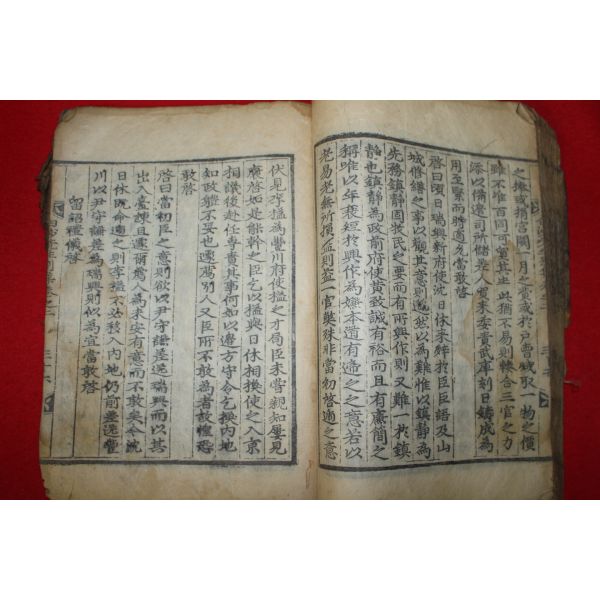 之捧或捐宮闕一月之費或於戶曹減取一物之價
雖不唯百同可當其生此猶不易則轉合三官之力
添以備邊司所儲其人實未安貴武庫刻日鑄成為
用至緊而時適允當敢啓
啓曰頃日瑞興新府使沈日休來辭於臣臣語及山
城修繕之事以觀其意則邈然以為難惟以鎮靜為
先務鎮靜固牧民之要而有所興作則又難一於鎮
靜也鎮靜為政前府使黃致誠有裕而且有廉簡之
稱唯以年衰短於興作為嫌本道有遞之之意若以
老易老無所損益則盍一官弊殊非當初啓遞之意
伏見李搵為豐川府使搵之才局臣未嘗親知屢見
廣啓如是能幹之臣乞以搵與日休相換使之入京
相議後赴任專責其事何如以邊方守令乞換內地
知政體不妥也遽爲別人又臣所不敢為者故惶恐
敢啓
啓曰當初臣之意則欲以尹守謙差送瑞興而以其
出入臺諫且遽爾爲人為未安有意而不敢矣今沈
日休既命遞之則李搵不必移入內地仍前差送豐
川以尹守謙差為瑞興則似為宜當敢啓
留詔禮儀啓